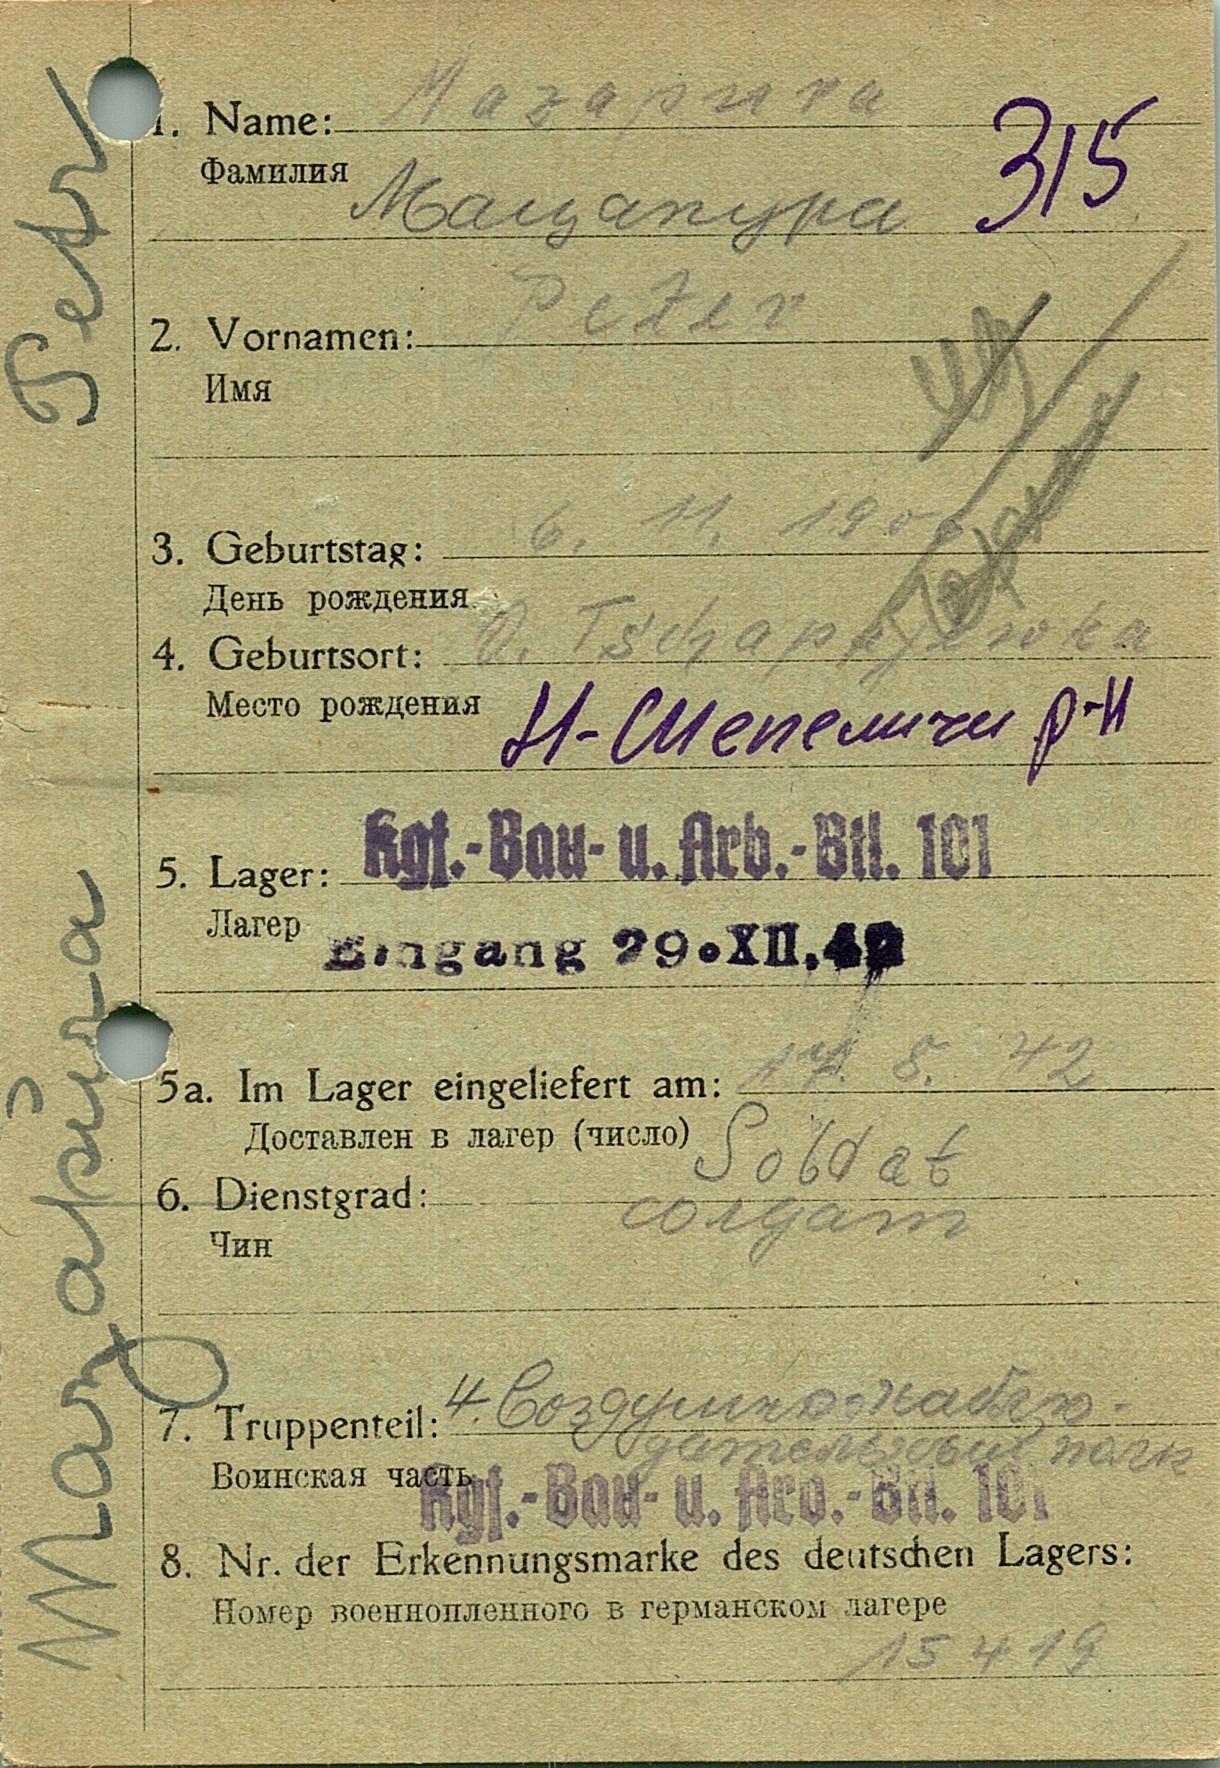 Petr
Mazapura
1. Name: Mazapura
Фамилия
Мацапура
315
2. Vornamen: Peter
Имя
3. Geburtstag: 6. 11. 190
День рождения
4. Geburtsort: O.
Место рождения
Н-Шепеличи р-н
5. Lager: Kgf.-Bau- u. Arb.-Btl. 101
Лагер
Eingang 29.XII.42
5a. Im Lager eingeliefert am: 17. 8. 42
Доставлен в лагер (число)
Soldat
6. Dienstgrad:
солдат
Чин
7. Truppenteil: 4. Воздушно наблю-
дательный полк
Воинская часть
Kgf.-Bau- u. Arb.-Btl. 101
8. Nr. der Erkennungsmarke des deutschen Lagers:
Номер военнопленного в германском лагере
15419